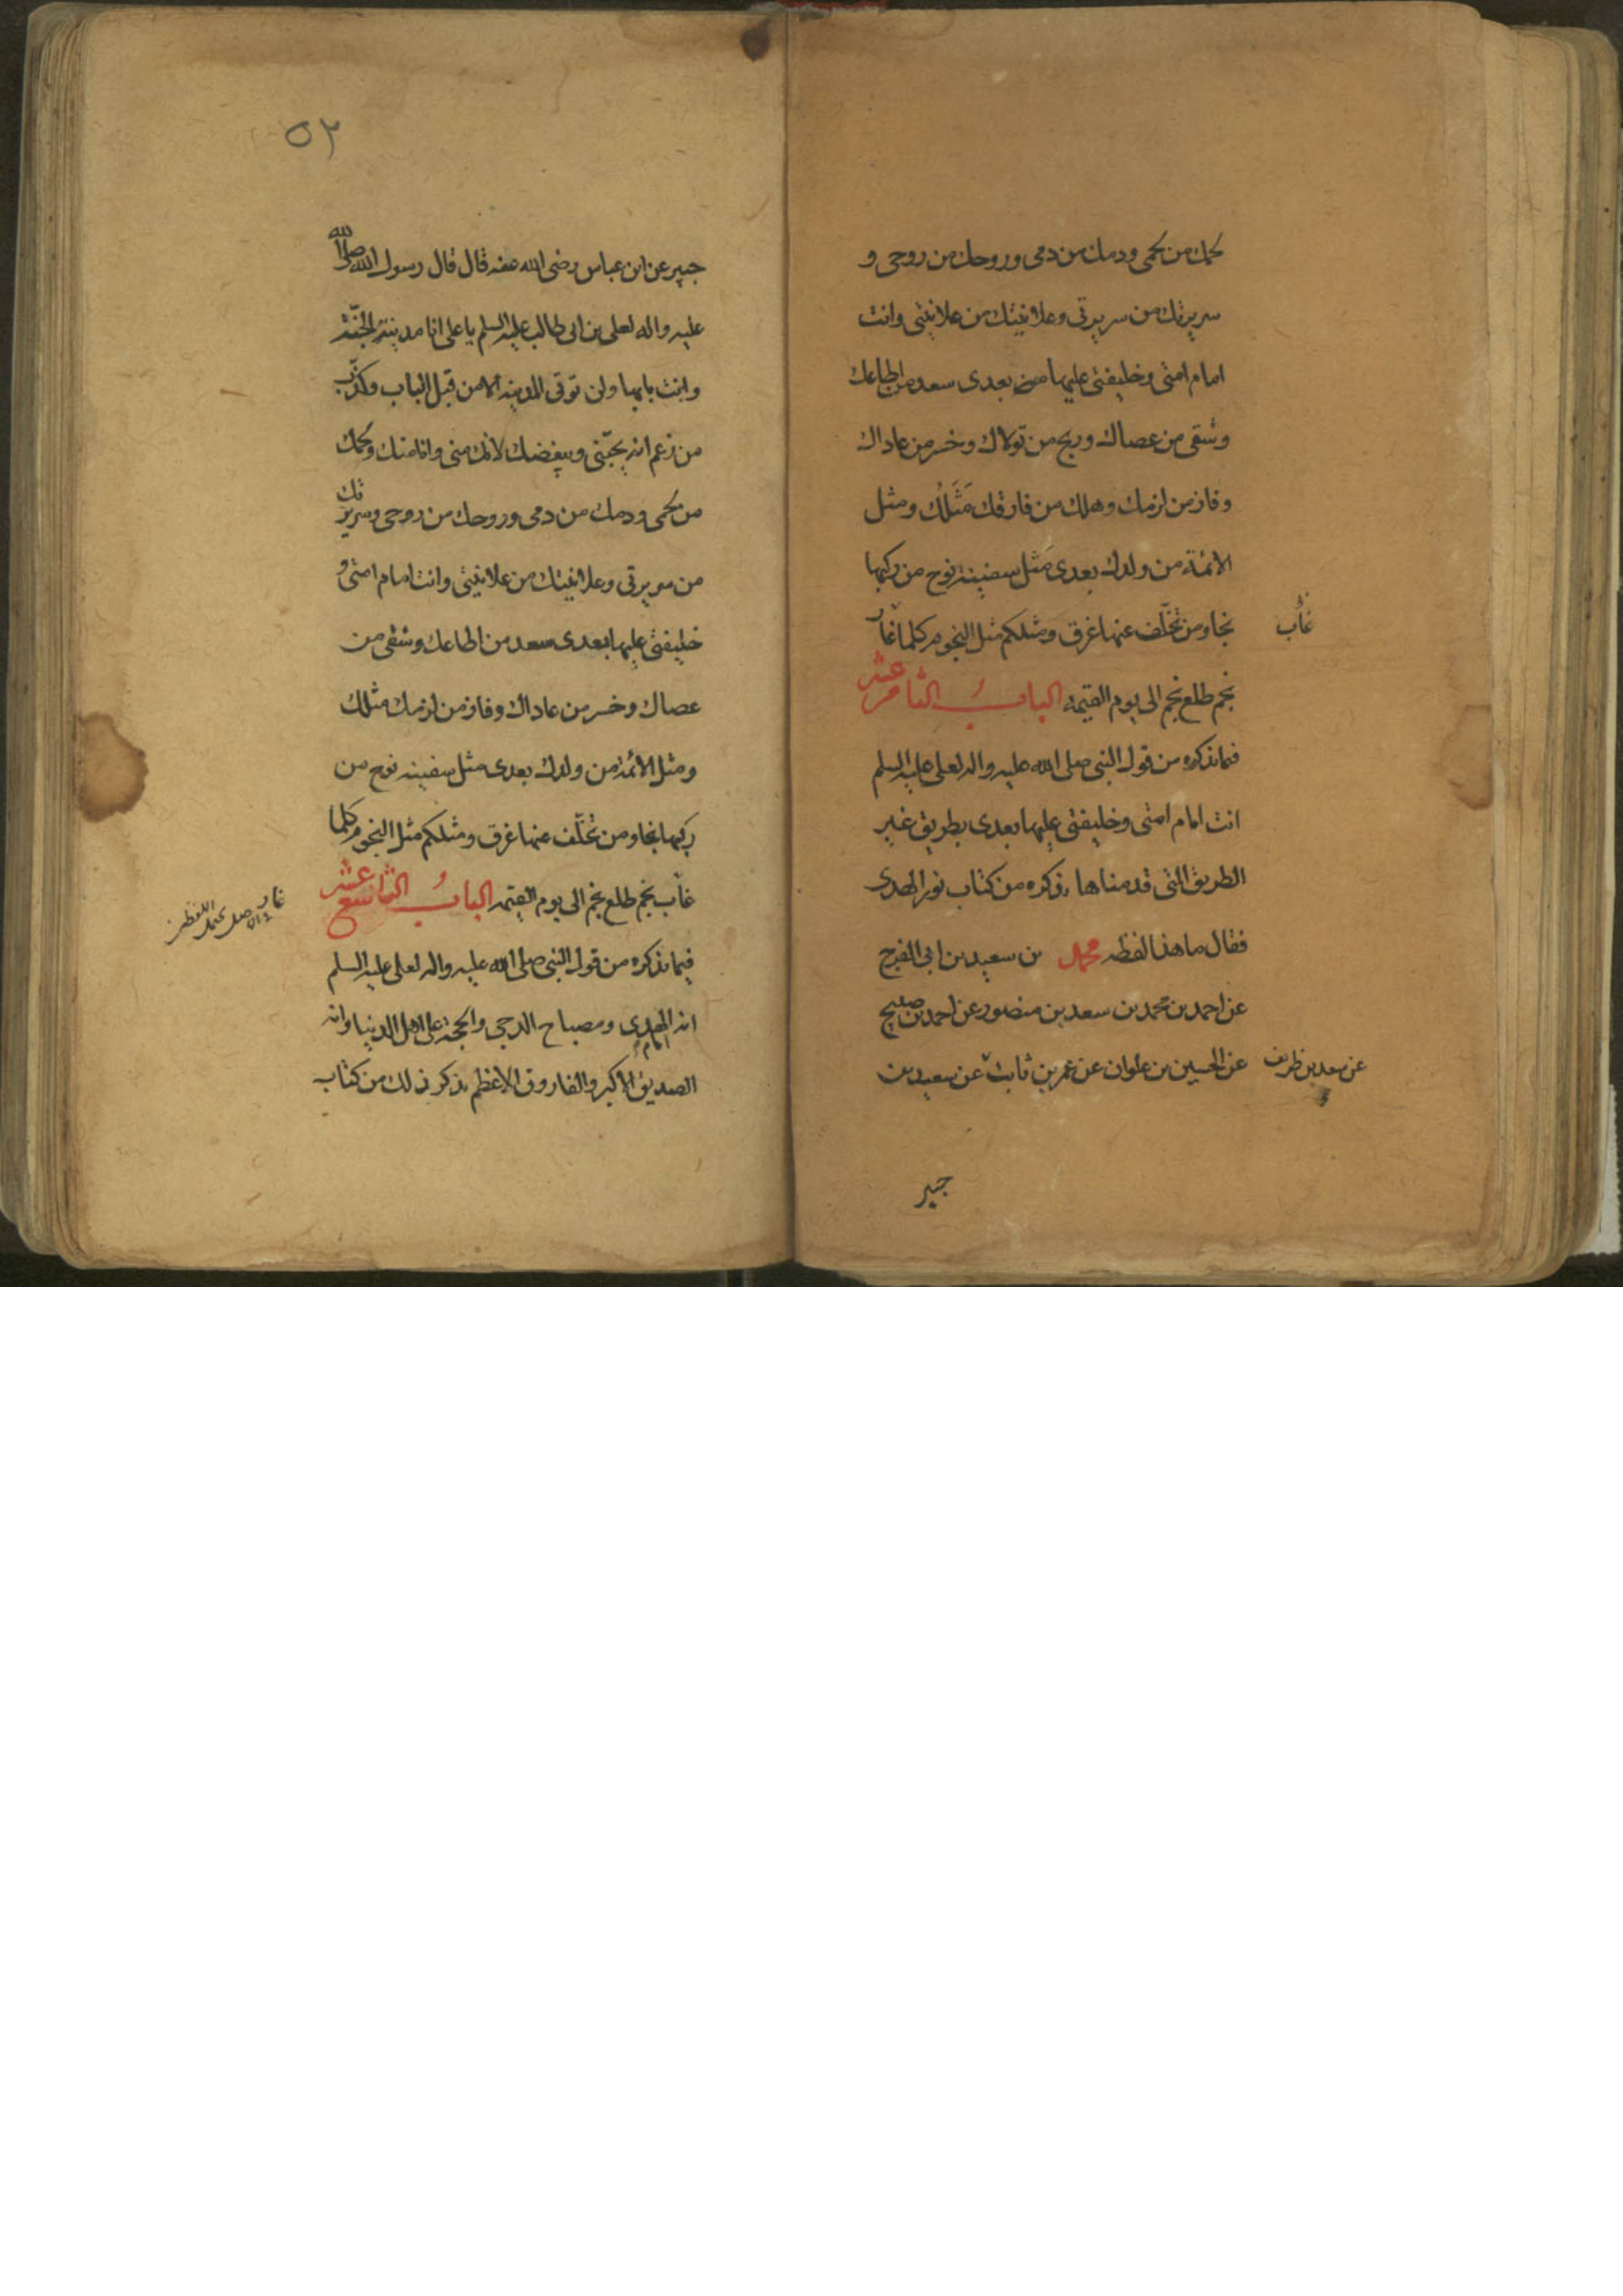 لحمك من لحمى ودمك من دمى وروحك من روحى و
سريرتك من سريرتى وعلانيتك من علانيتى وانت
امام امتى وخليفتى عليها من بعدى سعد من اطاعك
وشقى من عصاك وربح من تولاك وخسر من عاداك
وفاز من لزمك وهلك من فارقك مَثَلُك ومثل
الائمة من ولدك بعدى مَثل سفينة نوح من ركبها
نجا ومن تخلّف عنها غرق ومثلكم مثل النجوم كلما غار
غاب
نجم طلع نجم الى يوم القيمة البابُ الثامن عشر
فيما نذكره من قول النبى صلى الله عليه واله لعلى عليه السلم
انت امام امتى وخليفتى عليها بعدى بطريق غير
الطريق التى قدمناها نذكره من كتاب نور الهدى
فقال ما هذا لفظه محمد بن سعيد بن ابى الفرج
عن احمد بن محمد بن سعد بن منصور عن احمد بن صبيح
عن الحسين بن علوان عن عمر بن ثابت عن سعيد بن
عن سعد بن ظريف
جبير
٥٢
جبير عن ابن عباس رضى الله عنه قال قال رسول الله صلى الله
عليه واله لعلى بن ابى طالب عليه السلم يا على انا مدينة الجنّة
وانت بابها ولن توتى المدينة الا من قبل الباب وكذب
من زعم انه يحبّنى ويبغضك لانك منى وانا منك ولحمك
من لحمى ودمك من دمى وروحك من روحى وسريرتك
من سريرتى وعلانيتك من علانيتى وانت امام امتى و
خليفتى عليها بعدى سعد من اطاعك وشقى من
عصاك وخسر من عاداك وفاز من لزمك مثلك
ومثل الائمة من ولدك بعدى مثل سفينة نوح من
ركبها نجا ومن تخلّف عنها غرق ومثلكم مثل النجوم كلما
غاب نجم طلع نجم الى يوم القيمة البابُ التاسع عشر
غار
فيما نذكره من قول النبى صلى الله عليه واله لعلى عليه السلم
انه امام الهدى ومصباح الدجى والحجة على اهل الدنيا وانه
الصديق الاكبر والفاروق الاعظم نذكر ذلك من كتاب